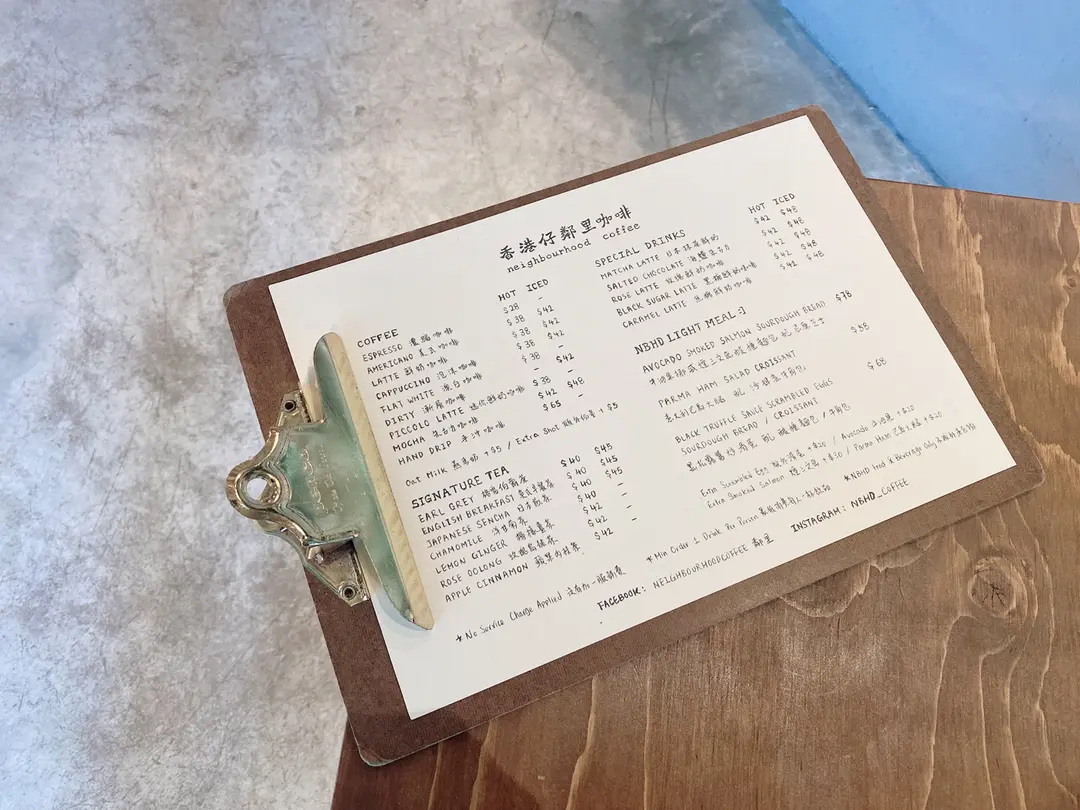 香港仔鄰里咖啡
neighbourhood coffee
HOT ICED
COFFEE
ESPRESSO 濃縮咖啡 $28 –
AMERICANO 美式咖啡 $38 $42
LATTE 鮮奶咖啡 $38 $42
CAPPUCCINO 泡沫咖啡 $38 $42
FLAT WHITE 澳白咖啡 $38 –
DIRTY 漸層咖啡 – $42
PICCOLO LATTE 迷你鮮奶咖啡 $38 –
MOCHA 朱古力咖啡 $42 $48
HAND DRIP 手沖咖啡 $65 –
Oat Milk 燕麥奶 +$5 / Extra Shot +$5
SIGNATURE TEA
EARL GREY 格雷伯爵茶 $40 $45
ENGLISH BREAKFAST 英式早餐茶 $40 $45
JAPANESE SENCHA 日本煎茶 $40 $45
CHAMOMILE 洋甘菊茶 $40 –
LEMON GINGER 檸檬薑茶 $42 –
ROSE OOLONG 玫瑰烏龍茶 $42 –
APPLE CINNAMON 蘋果肉桂茶 $42
HOT ICED
SPECIAL DRINKS $42 $48
MATCHA LATTE 日本抹茶鮮奶 $42 $48
SALTED CHOCOLATE 海鹽朱古力 $42 $48
ROSE LATTE 玫瑰鮮奶咖啡 $42 $48
BLACK SUGAR LATTE 黑糖鮮奶咖啡 $42 $48
CARAMEL LATTE 焦糖鮮奶咖啡
NBHD LIGHT MEAL :)
AVOCADO SMOKED SALMON SOURDOUGH BREAD $78
牛油果煙三文魚酸種麵包
PARMA HAM SALAD CROISSANT $58
意大利巴馬火腿 配 沙律 牛角包
BLACK TRUFFLE SAUCE SCRAMBLED EGGS $68
SOURDOUGH BREAD / CROISSANT
黑松露醬炒滑蛋 配 酸種麵包 / 牛角包
Extra Scrambled Eggs 額外滑蛋 +$20 / Avocado 牛油果 +$20
Extra Smoked Salmon 煙三文魚 +$20 / Parma Ham 巴馬火腿 +$20
*NBHD Food & Beverage Only
*Min Order 1 Drink Per Person
*No Service Charge Applied 沒有加一服務費
FACEBOOK: NEIGHBOURHOODCOFFEE 鄰里 INSTAGRAM: NBHD_COFFEE